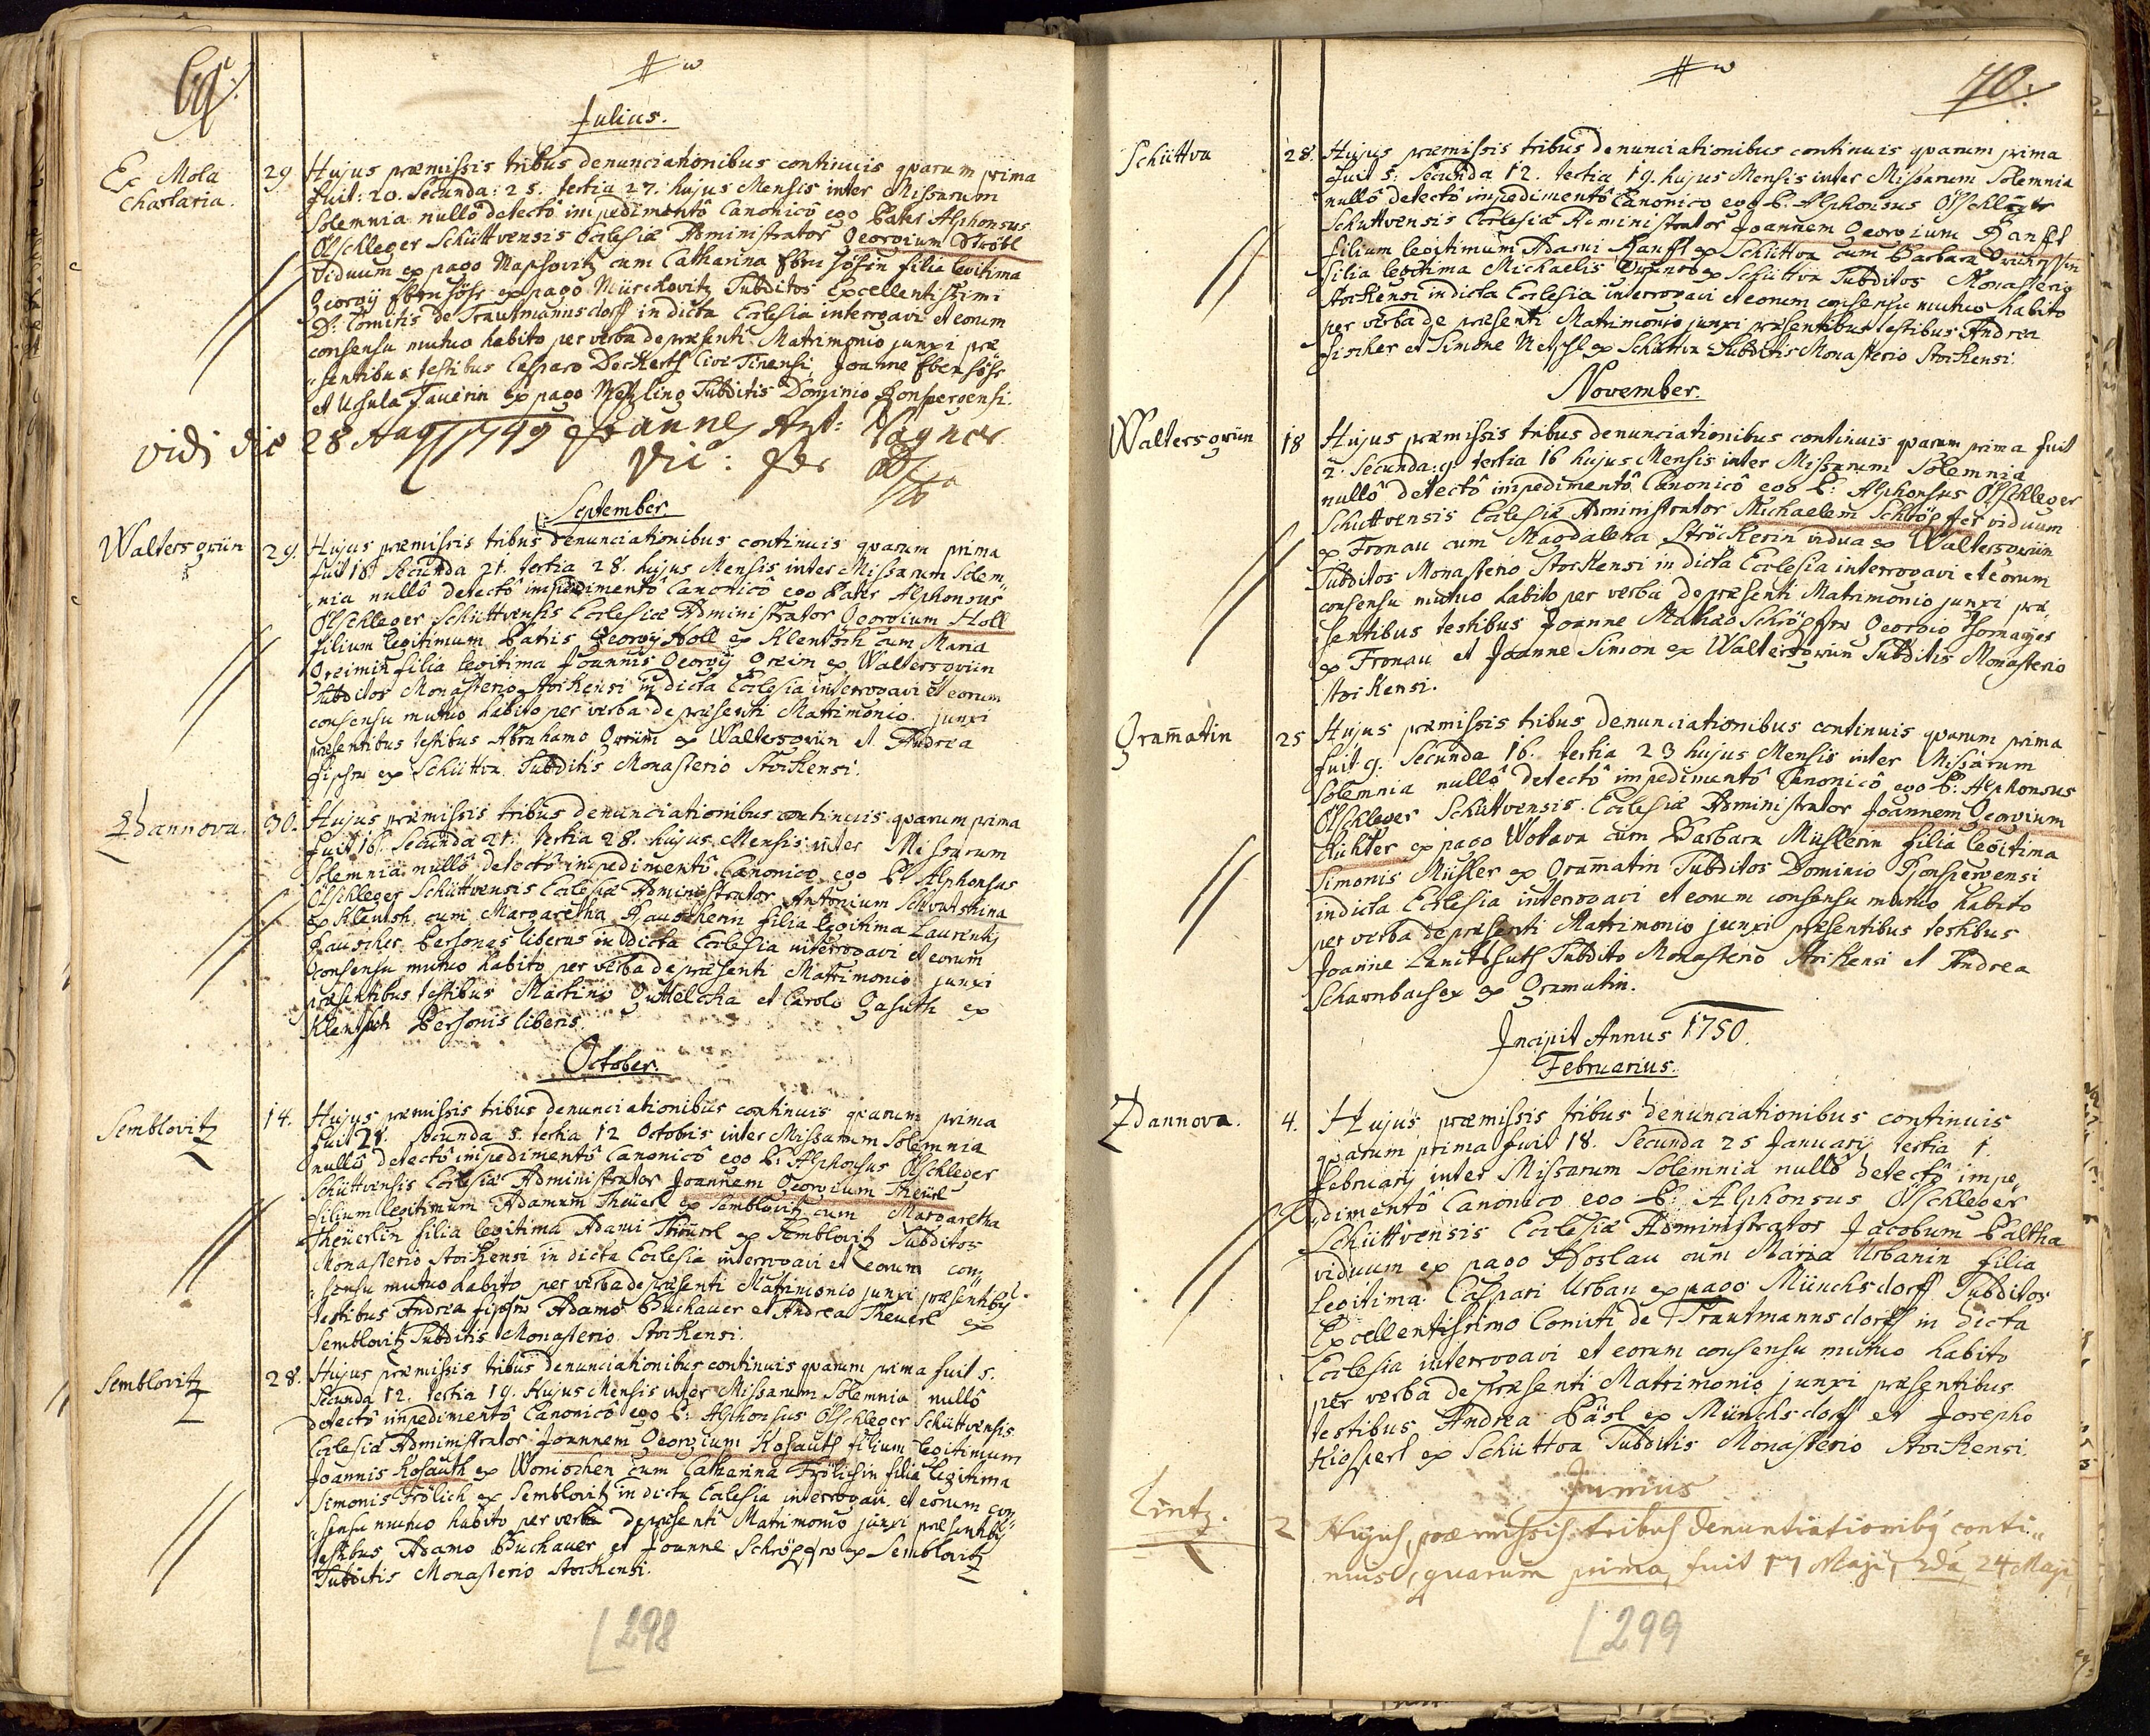 69.
Julius.
Ex Mola
Chartaria.
29. Hujus præmissis tribus denunciationibus continuis quarum prima
fuit: 20. Secunda: 25. tertia 27. hujus Mensis inter Missarum
Solemnia nullô detectô impedimentô Canonicô ego Pater Alphonsus
Ölschleger Schüttvensis Ecclesiæ Administrator Georgium Ströbl
Viduum ex pago cum Catharina filia legitima
Georgij ex pago Subditos Excellentissimi
D: Comitis de Trautmannsdorff in dicta Ecclesia interrogavi et eorum
consensu mutuo habito per verba de præsenti Matrimonio junxi præ
"sentibus testibus Casparo Civi Joanne
et Ursula ex pago Subditis Dominio Ronspergensi.
vidi die 28 Aug 1749 Joannes Ant: Wagner
Vic: For
September.
Waltersgrün
29. Hujus præmissis tribus denunciationibus continuis quarum prima
fuit Secunda 21. tertia 28. hujus Mensis inter Missarum Solem"
"nia nullô detectô impedimentô Canonicô ego Pater Alphonsus
Ölschleger Schüttvensis Ecclesiæ Administrator Georgium Holl
filium legitimum Patris Georgij Holl ex Klentsch cum Maria
filia legitima Joannis Georgij ex Waltersgrün
Subditos Monasterio Stockensi in dicta Ecclesia interrogavi et eorum
consensu mutuo habito per verba de præsenti Matrimonio junxi
præsentibus testibus Abrahamo ex Waltersgrün et Andrea
Fischer ex Schüttva Subditis Monasterio Stockensi.
Zdannova.
30. Hujus præmissis tribus denunciationibus continuis quarum prima
fuit Secunda 21. tertia 28. hujus Mensis inter Missarum
Solemnia nullô detectô impedimentô Canonico ego P: Alphonsus
Ölschleger Schüttvensis Ecclesiæ Administrator Antonium
ex Klentsh cum Margaretha Rauscherin filia legitima Laurentij
Rauscher Personas liberas in dicta Ecclesia interrogavi et eorum
consensu mutuo habito per verba de præsenti Matrimonio junxi
præsentibus testibus Martino et Carolo ex
Klentsch Personis liberis.
October.
Semblovitz
14. Hujus præmissis tribus denunciationibus continuis quarum prima
fuit secunda 5. tertia 12 Octobris inter Missarum Solemnia
nullô detectô impedimentô Canonicô ego P: Alphonsus Ölschleger
Schüttvensis Ecclesiæ Administrator Joannem Georgium Theürl
filium legitimum Adamum Theüerl ex Semblovitz cum Margaretha
Theüerlin filia legitima Adami ex Semblovitz Subditos
Monasterio Stockensi in dicta Ecclesia interrogavi et eorum con"
"sensu mutuo habito per verba de præsenti Matrimonio junxi præsentibus
testibus Andrea Fischer Adamo Buchauer et Andrea Theuerl ex
Semblovitz Subditis Monasterio Stockensi.
Semblovitz
28. Hujus præmissis tribus denunciationibus continuis quarum prima fuit 5.
Secunda 12. tertia 19. Hujus Mensis inter Missarum Solemnia nullô
detectô impedimentô Canonicô ego P: Alphonsus Ölschleger Schüttvensis
Ecclesiæ Administrator Joannem Georgium Kohauth filium legitimum
Joannis Kohauth ex cum Catharina Frölichin filia legitima
Simonis Frölich ex Semblovitz in dicta Ecclesia interrogavi et eorum con"
"sensu mutuo habito per verba de præsenti Matrimonio junxi præsentibus
testibus Adamo Buchauer et Joanne Schröpfer ex Semblovitz
Subditis Monasterio Stockensi.
298
70.
Schüttva
28. Hujus præmissis tribus denunciationibus continuis quarum prima
fuit 5: Secunda 12. tertia 19. hujus Mensis inter Missarum Solemnia
nullô detectô impedimentô Canonico ego P: Alphonsus Ölschleger
Schüttvensis Ecclesiæ Administrator Joannem Georgium Ranfft
filium legitimum Adami Ranfft ex Schüttva cum Barbara
filia legitima Michaelis ex Schüttva Subditos Monasterio
Stockensi in dicta Ecclesia interrogavi et eorum consensu mutuo habito
per verba de præsenti Matrimonio junxi præsentibus testibus Andrea
Fischer et Simone ex Schüttva Subditis Monasterio Stockensi.
November.
Waltersgrün
18 Hujus præmissis tribus denunciationibus continuis quarum prima fuit
2. Secunda: 9. tertia 16 hujus Mensis inter Missarum Solemnia
nullô detectô impedimentô Canonicô ego P: Alphonsus Ölschleger
Schuttvensis Ecclesiæ Administrator Michaelem Schröpfer viduum
ex Fronau cum Magdalena Ströckerin vidua ex Waltersgrün
Subditos Monasterio Stockensi in dicta Ecclesia interrogavi et eorum
consensu mutuo habito per verba de præsenti Matrimonio junxi præ
sentibus testibus Joanne Schröpfer Georgio
ex Fronau et Joanne Simon ex Waltersgrün Subditis Monasterio
Stockensi.
Gram̄atin
25 Hujus præmissis tribus denunciationibus continuis quarum prima
fuit 9. Secunda 16. tertia 23 hujus Mensis inter Missarum
Solemnia nullô detectô impedimentô Canonicô ego P: Alphonsus
Ölschleger Schüttvensis Ecclesiæ Administrator Joannem Georgium
Richter ex pago Wottava cum Barbara Müllerin filia legitima
Simonis Müller ex Gram̄atin Subditos Dominio Ronspergensi
in dicta Ecclesia interrogavi et eorum consensu mutuo habito
per verba de præsenti Matrimonio junxi præsentibus testibus
Joanne Subdito Monasterio Stockensi et Andrea
ex Gramatin.
Incipit Annus 1750.
Februarius.
Zdannova.
4. Hujus præmissis tribus denunciationibus continuis
quarum prima fuit 18. Secunda 25 Januarij tertia 1.
Februarij inter Missarum Solemnia nullô detectô impe"
"dimentô Canonico ego P: Alphonsus Ölschleger
Schüttvensis Ecclesiæ Administrator Jacobum Paltha
viduum ex pago Hoslau cum Maria Urbanin filia
legitima Caspari Urban ex pago Münchsdorff Subditos
Excellentissimo Comiti de Trautmannsdorff in dicta
Ecclesia interrogavi et eorum consensu mutuo habito
per verba de præsenti Matrimonio junxi præsentibus
testibus Andrea Päsl ex Münchsdorff et Josepho
ex Schüttva Subditis Monasterio Stockensi.
Junius
Lintz.
2 Hujus, præmissis tribus denuntiationibus conti"
nuis, quarum prima fuit 17 Maji, 2da 24 Maji,
299